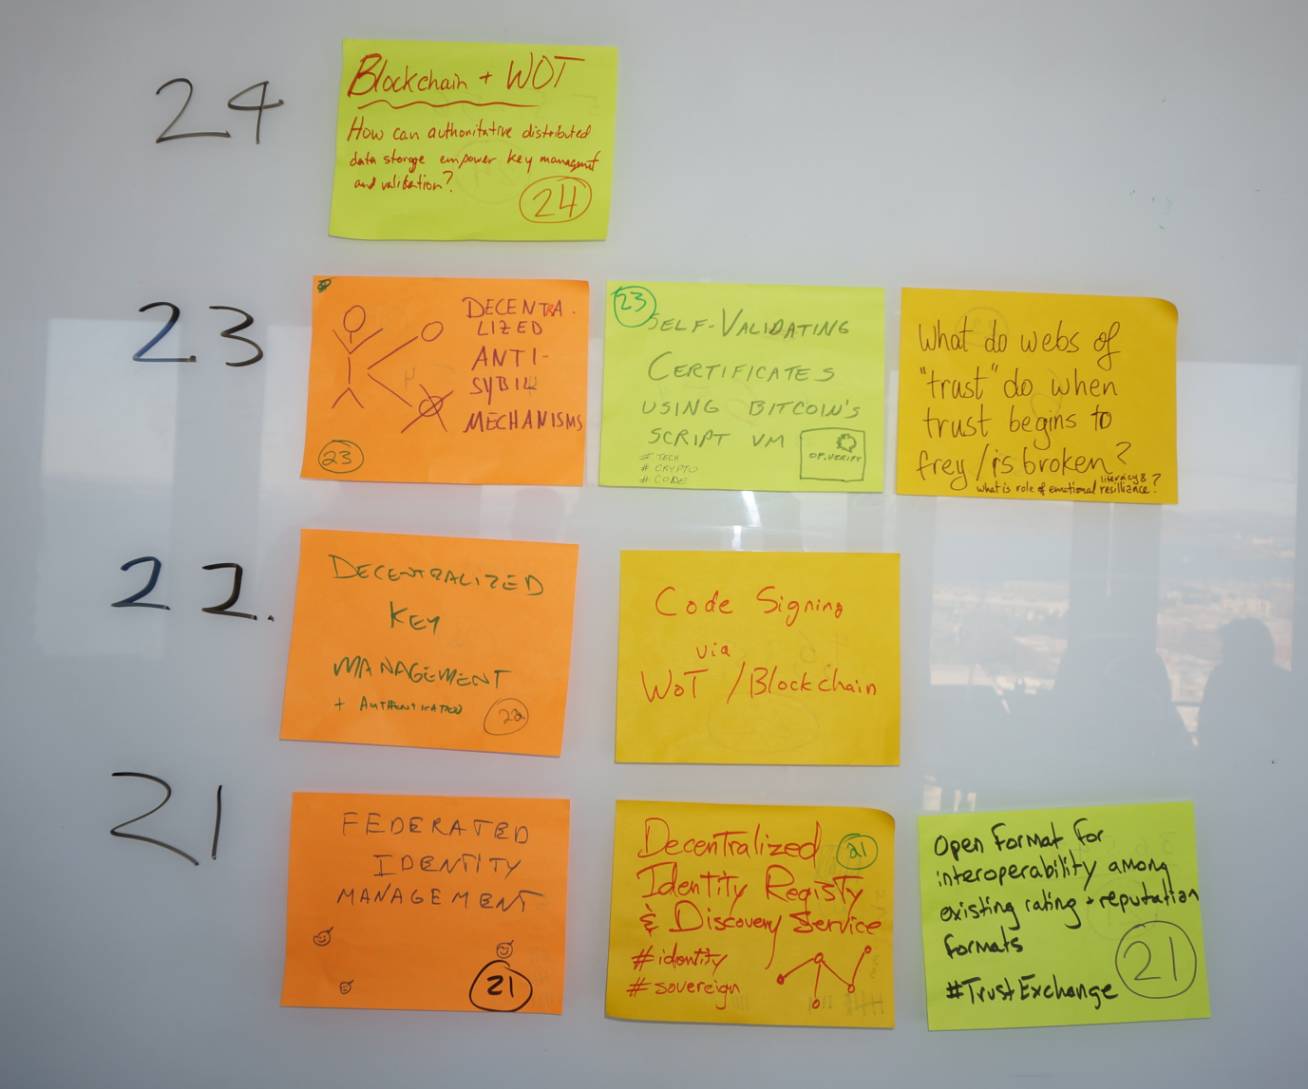 24
Blockchain + WOT
How can authoritative distributed
data storage empower key managmt
and validation?
24
23
DECENTRA-
LIZED
ANTI-
SYBIL
MECHANISMS
23
23
SELF-VALIDATING
CERTIFICATES
USING BITCOIN'S
SCRIPT VM
# TECH
# CRYPTO
# CODE
OP_VERIFY
What do webs of
"trust" do when
trust begins to
frey/is broken?
literacy &
what is role of emotional resilliance?
22.
DECENTRALIZED
KEY
MANAGEMENT
+ AUTHENTICATION
22
Code Signing
via
WoT / Blockchain
21
FEDERATED
IDENTITY
MANAGEMENT
21
Decentralized
21
Identity Registy
& Discovery Service
#identity
#sovereign
Open Format for
interoperability among
existing rating + reputation
formats
21
#TrustExchange